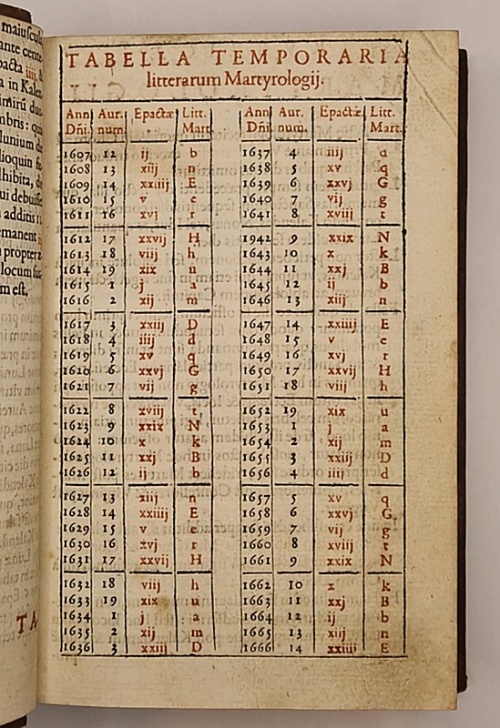 maiuscul
ante cente
pacta iiij. &
a in Kalen
imirū duo
mbris: qui
lunium de
lioquin
hibita, de
ui debuiss
additis 11
emanent
propter
locum
m est.
TA
TABELLA TEMPORARIA
litterarum Martyrologij.
Ann. Aur. Epactæ Litt. Ann. Aur. Epactæ Litt.
Dñi. num. . Mart. Dñi. num. Mart.
1607 12 ij b 1637 4 iiij d
1608 13 xiij n 1638 5 xv q
1609 14 xxiiij E 1639 6 xxvj G
1610 15 v e 1640 7 vij g
1611 16 xvj r 1641 8 xviij t
1612 17 xxvij H 1942 9 xxix N
1613 18 viij h 1643 10 x k
1614 19 xix u 1644 11 xxj B
1615 1 j a 1645 12 ij b
1616 2 xij m 1646 13 xiij n
1617 3 xxiij D 1647 14 xxiiij E
1618 4 iiij d 1648 15 v e
1619 5 xv q 1649 16 xvj r
1620 6 xxvj G 1650 17 xxvij H
1621 7 vij g 1651 18 viij h
1622 8 xviij t 1652 19 xix u
1623 9 xxix N 1653 1 j a
1624 10 x k 1654 2 xij m
1625 11 xxj B 1655 3 xxiij D
1626 12 ij b 1656 4 iiij d
1627 13 xiij n 1657 5 xv q
1628 14 xxiiij E 1658 6 xxvj G
1629 15 v e 1659 7 vij g
1630 16 xvj r 1660 8 xviij t
1631 17 xxvij H 1661 9 xxix N
1632 18 viij h 1662 10 x k
1633 19 xix u 1663 11 xxj B
1634 1 j a 1664 12 ij b
1635 2 xij m 1665 13 xiij n
1636 3 xxiij D 1666 14 xxiiij E